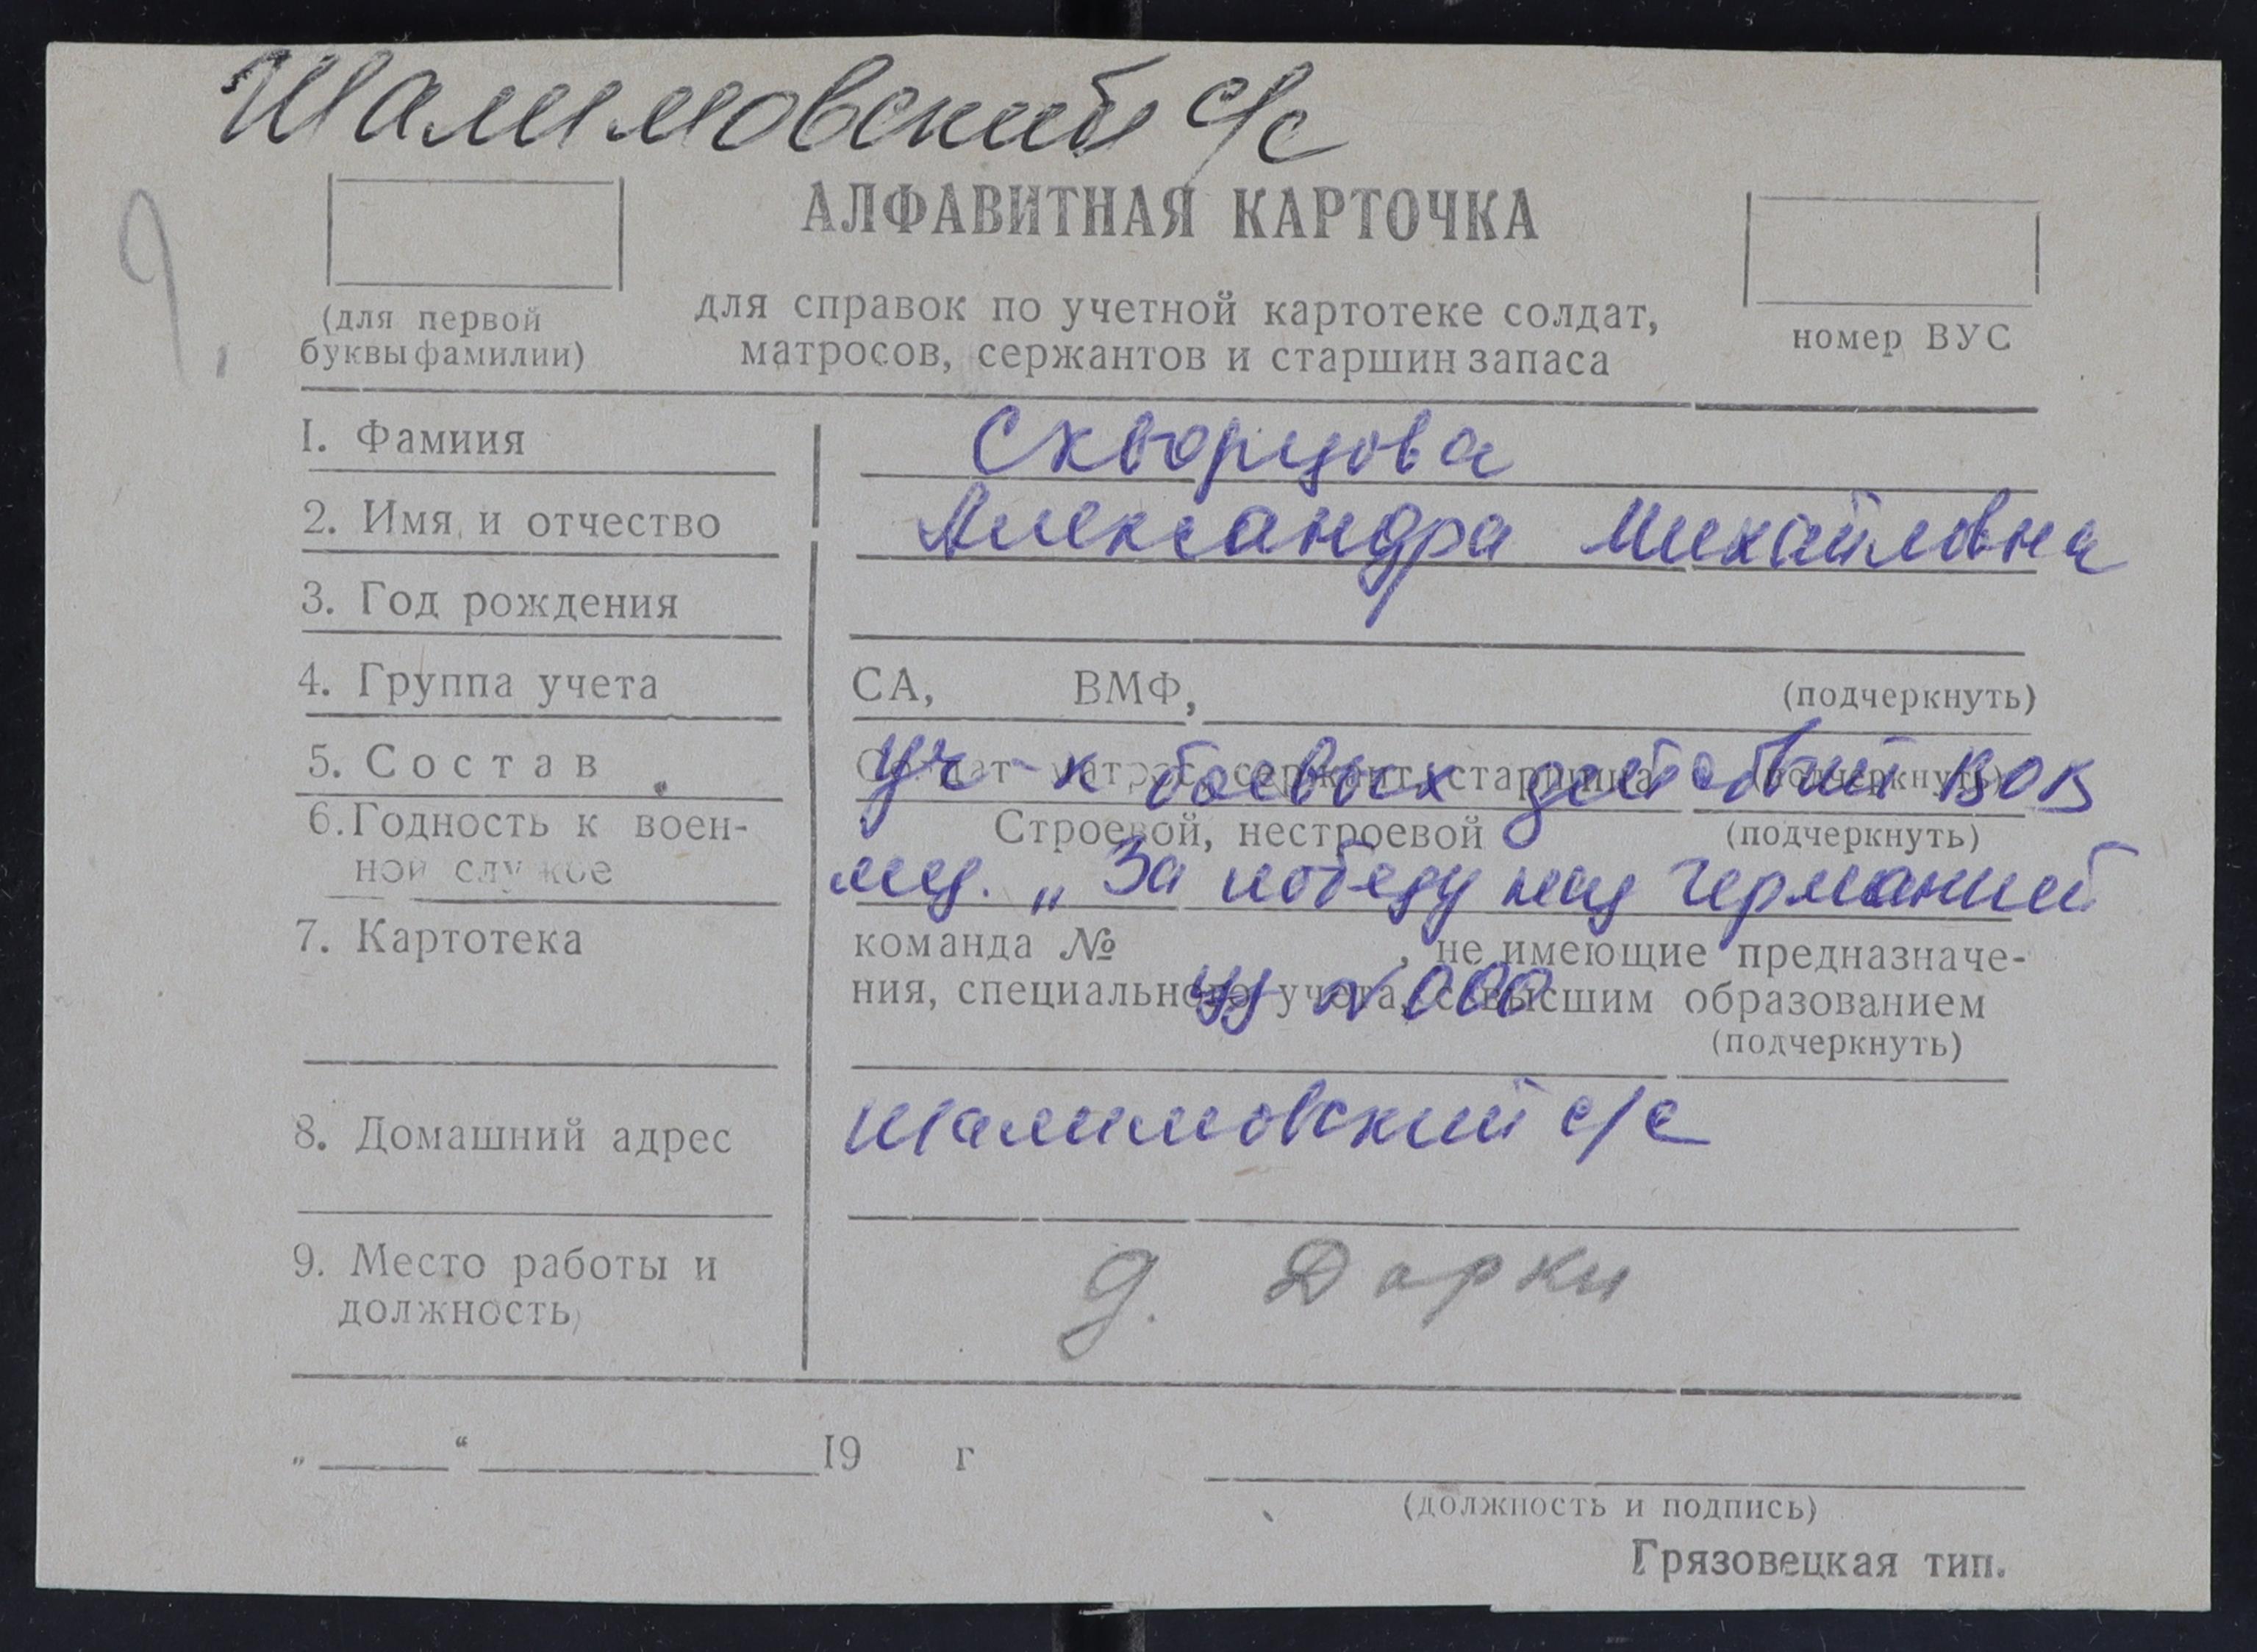 Шалимовский с/с
9.
АЛФАВИТНАЯ КАРТОЧКА
(для первой
буквы фамилии)
для справок по учетной картотеке солдат,
матросов, сержантов и старшин запаса
номер ВУС
I. Фамиия
Скворцова
2. Имя и отчество
Александра Михайловна
3. Год рождения
4. Группа учета
СА, ВМФ, (подчеркнуть)
5. Состав
Солдат матрос, сержант, старшина (подчеркнуть)
уч-к боевых действий ВОВ
6. Годность к воен-
ной службе
Строевой, нестроевой (подчеркнуть)
мед. „За победу над Германией
7. Картотека
команда № , не имеющие предназначе-
ния, специального учета, с высшим образованием
(подчеркнуть)
8. Домашний адрес
Шалимовский с/с
9. Место работы и
должность
д. Дарки
„ “ 19 г
(должность и подпись)
Грязовецкая тип.